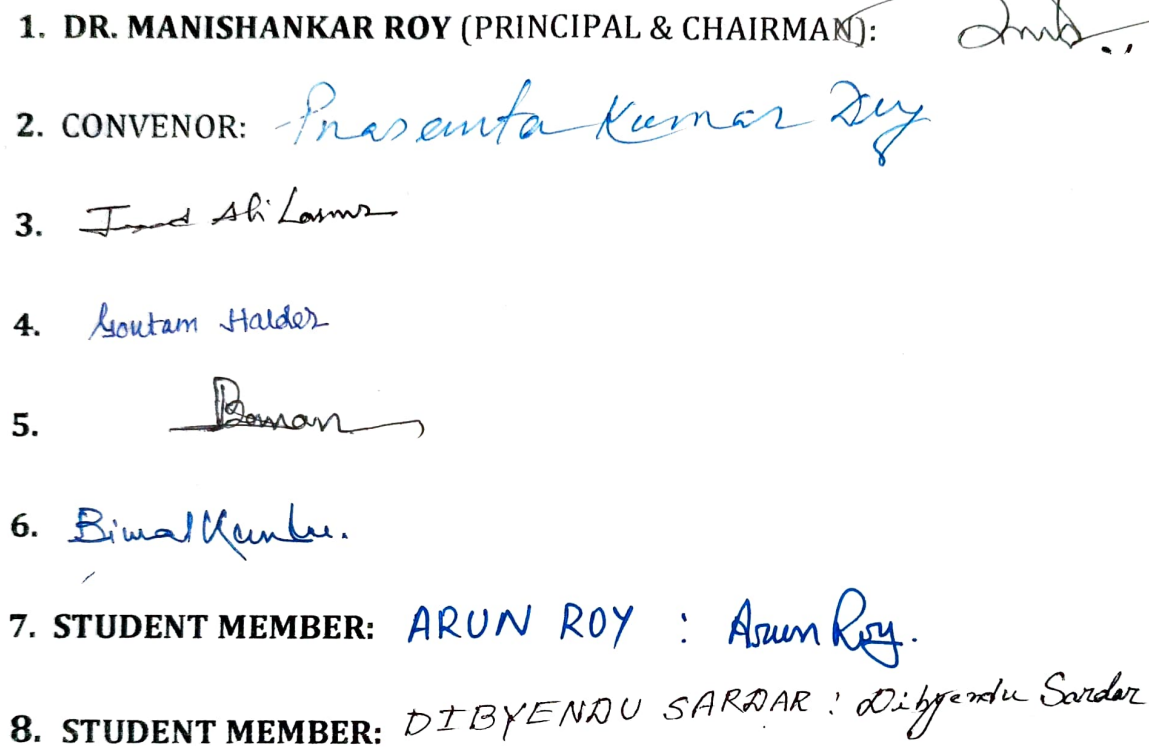 1. DR. MANISHANKAR ROY (PRINCIPAL & CHAIRMAN):
2. CONVENOR: Prasanta Kumar Dey
3. Ali
4. Goutam Halder
5. Barman
6. Bimal Kundu.
7. STUDENT MEMBER: ARUN ROY : Arun Roy.
8. STUDENT MEMBER: DIBYENDU SARDAR : Dibyendu Sardar